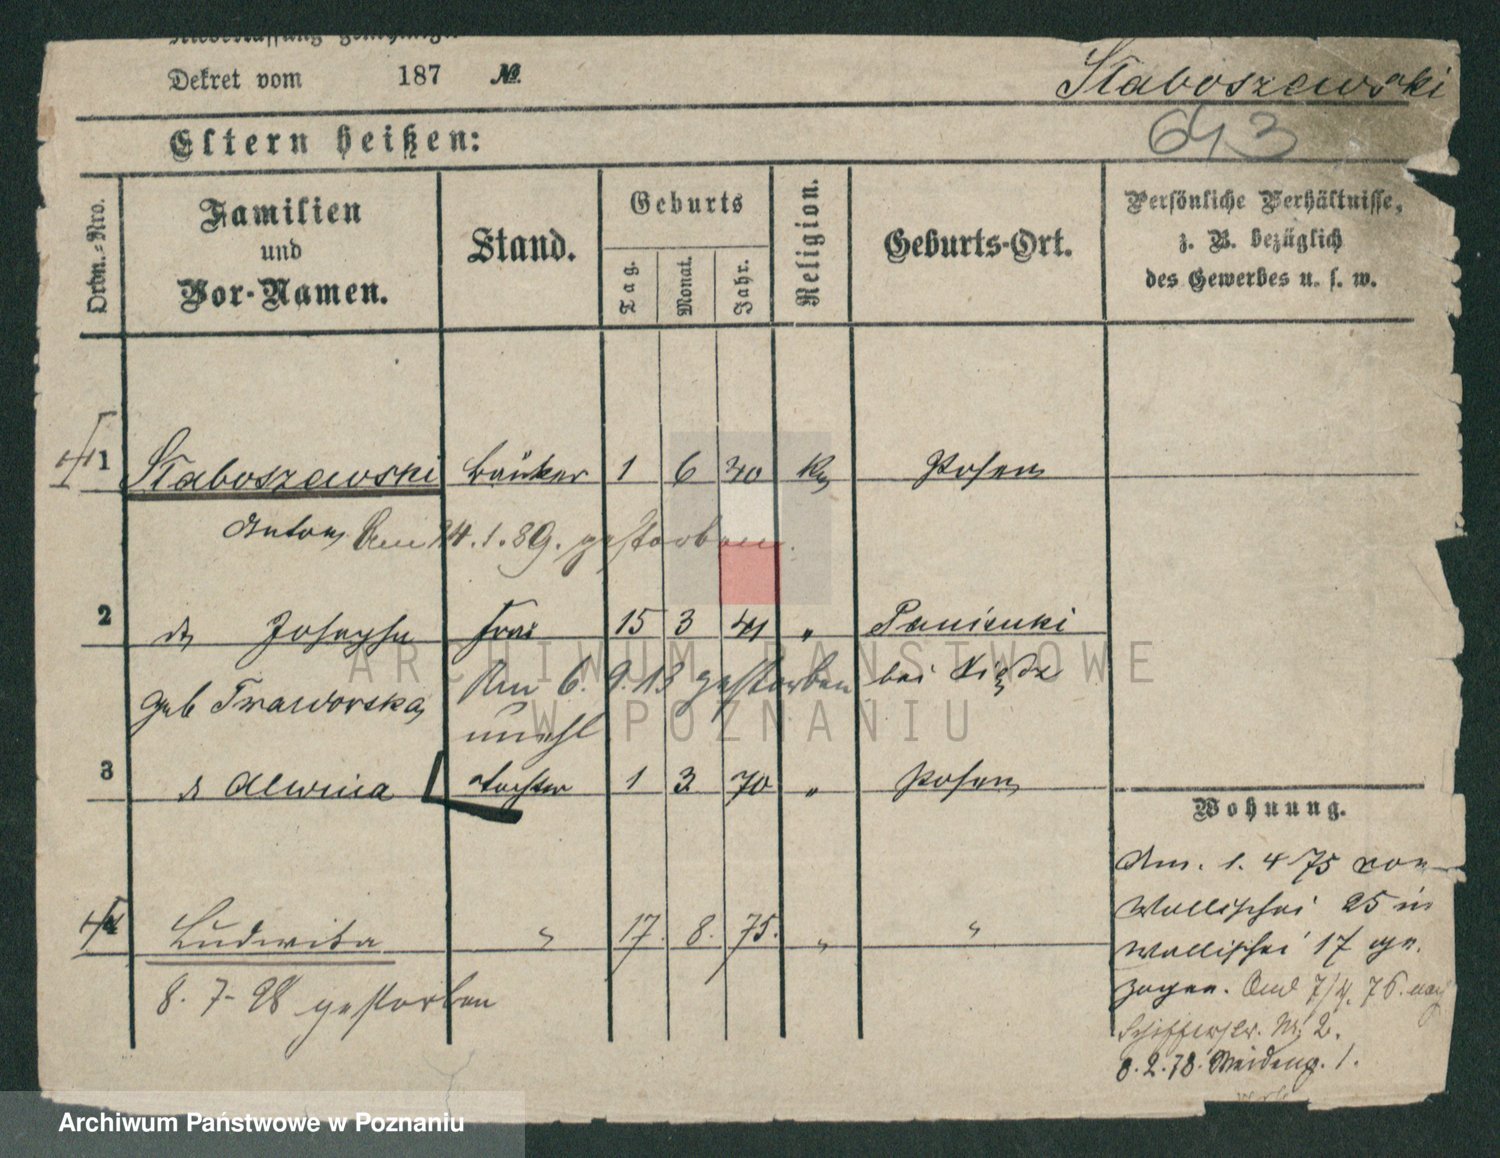 Niederlassung genehmigt
Dekret vom 187 №.
Staboszewski
643
Eltern heißen:
Ordn.-Nro.
Familien
und
Vor-Namen.
Stand.
Geburts
Tag.
Monat.
Jahr.
Religion.
Geburts-Ort.
Persönliche Verhältnisse,
z. B. bezüglich
des Gewerbes u. s. w.
1 Staboszewski 1 6 40 Posen
Anton Am 24.1.89. gestorben.
2 Josepha Frau 15 3 41 " Panienki
geb Traworska Am 6. 9. 13 gestorben bei
3 Alwina Tochter 1 3 70 " Posen
Wohnung.
4 Ludwika " 17. 8. 75. " "
8. 7- 98 gestorben
Am. 1. 4 75 von
Wallischei 25 in
Wallischei 17 ge-
zogen. 7/4. 76. nach
Schifferstr. Nr. 2.
8. 2. 78. 1.
ARCHIWUM PAŃSTWOWE
W POZNANIU
Archiwum Państwowe w Poznaniu